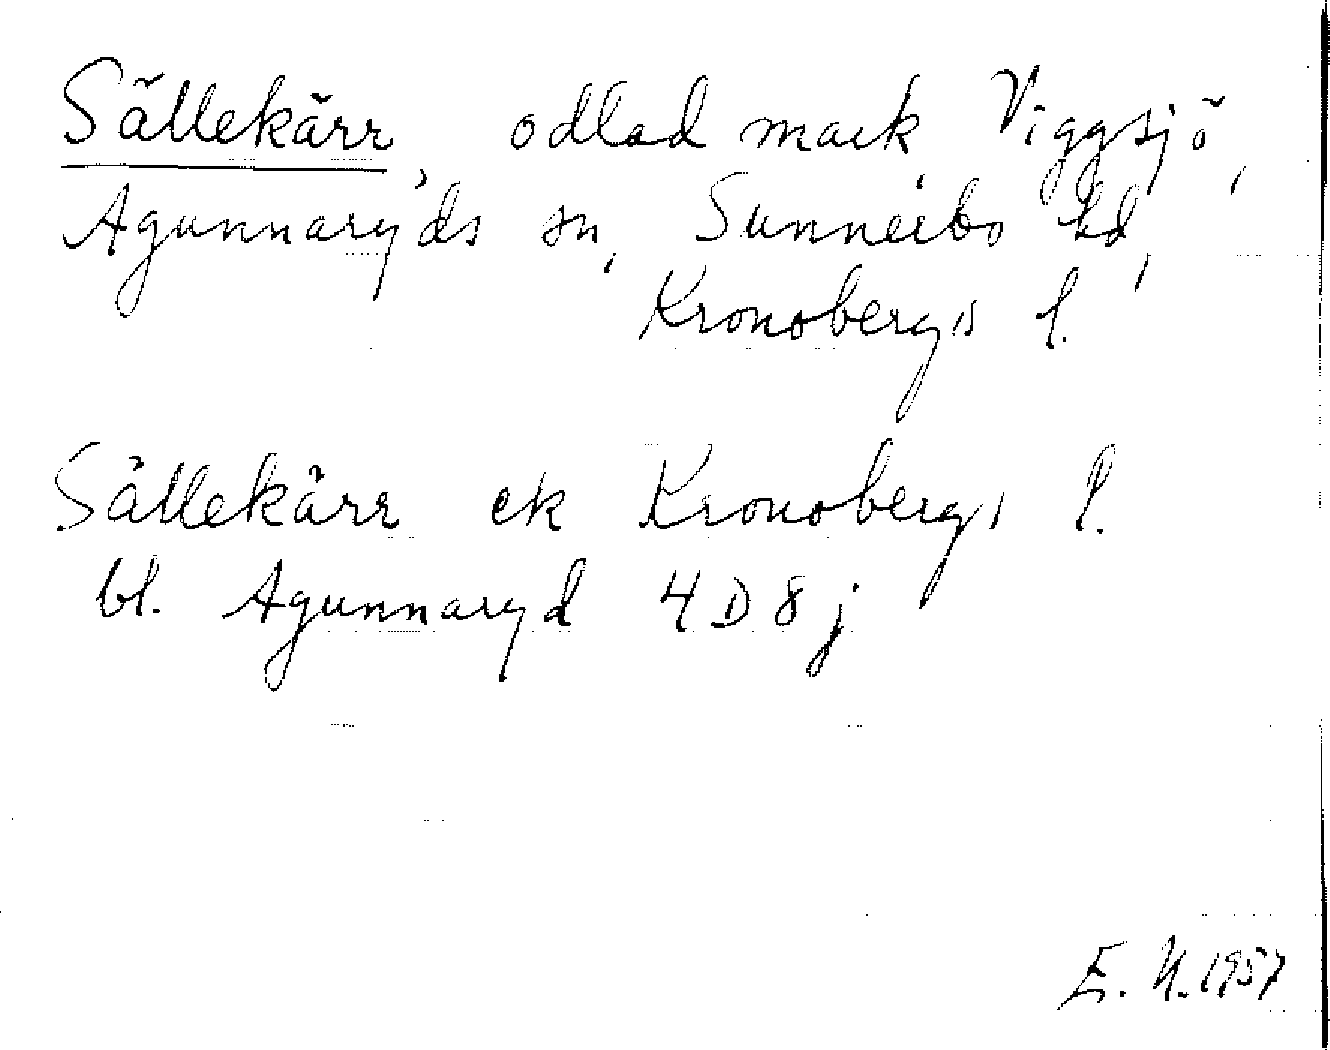 Sällekärr, odlad mark, Viggsjö,
Agunnaryds sn, Sunnerbo hd,
Kronobergs l.
Sällekärr ek Kronobergs l.
bl. Agunnaryd 4D8j
E. N. 1957